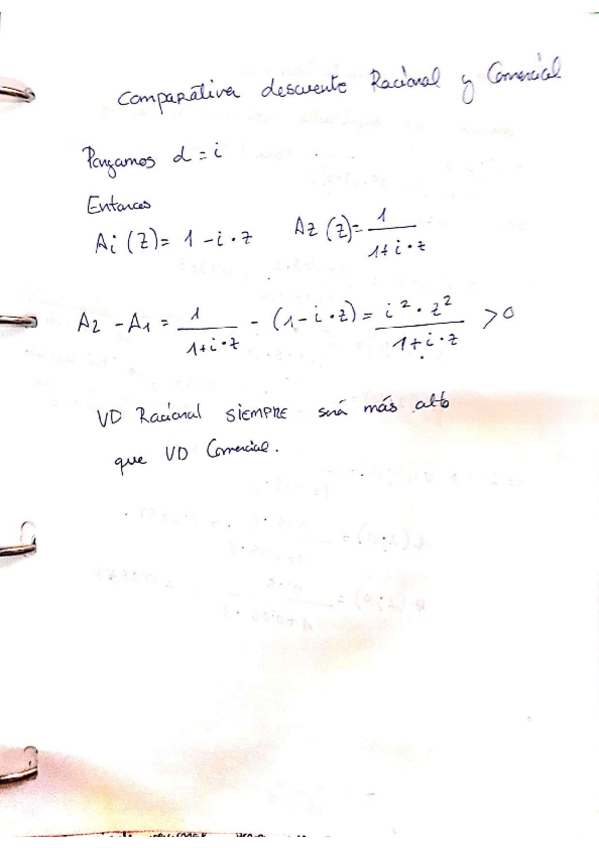 Comparativa descuento Racional y Comercial
Pongamos d = i
Entonces
Ai (z) = 1 - i · z   A2 (z) = 1 / 1 + i · z
A2 - A1 = 1 / 1 + i · z - (1 - i · z) = i² · z² / 1 + i · z > 0
VD Racional SIEMPRE será más alto
que VD Comercial.